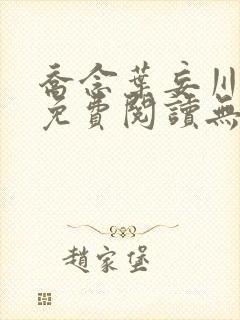 喬念葉妄川
免費閱讀無
趙家堡